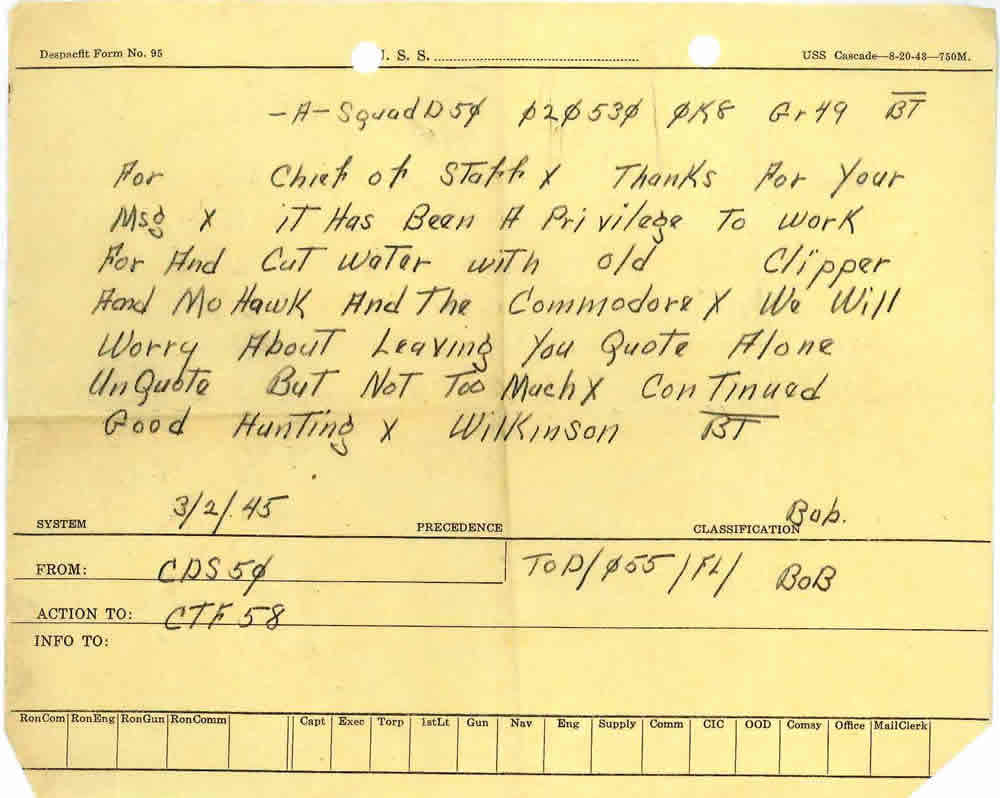 Despacht Form No. 95 U. S. S. ........ USS Cascade—8-20-43—750M.
-A- Squad D 5Ø Ø2Ø53Ø ØK8 Gr 49 BT
For Chief of Staff X Thanks For Your
Msg X iT Has Been A Privilege To Work
For And Cut Water with old Clipper
And MoHawk And The Commodore X We Will
Worry About Leaving You Quote Alone
UnQuote But Not Too Much X ConTinued
Good Hunting X Wilkinson BT
SYSTEM 3/2/45 PRECEDENCE CLASSIFICATION Bob.
FROM: CDS 5Ø ToD/Ø55/FL/ BoB
ACTION TO: CTF 58
INFO TO:
RonCom RonEng RonGun RonComm Capt Exec Torp 1stLt Gun Nav Eng Supply Comm CIC OOD Comsy Office MailClerk